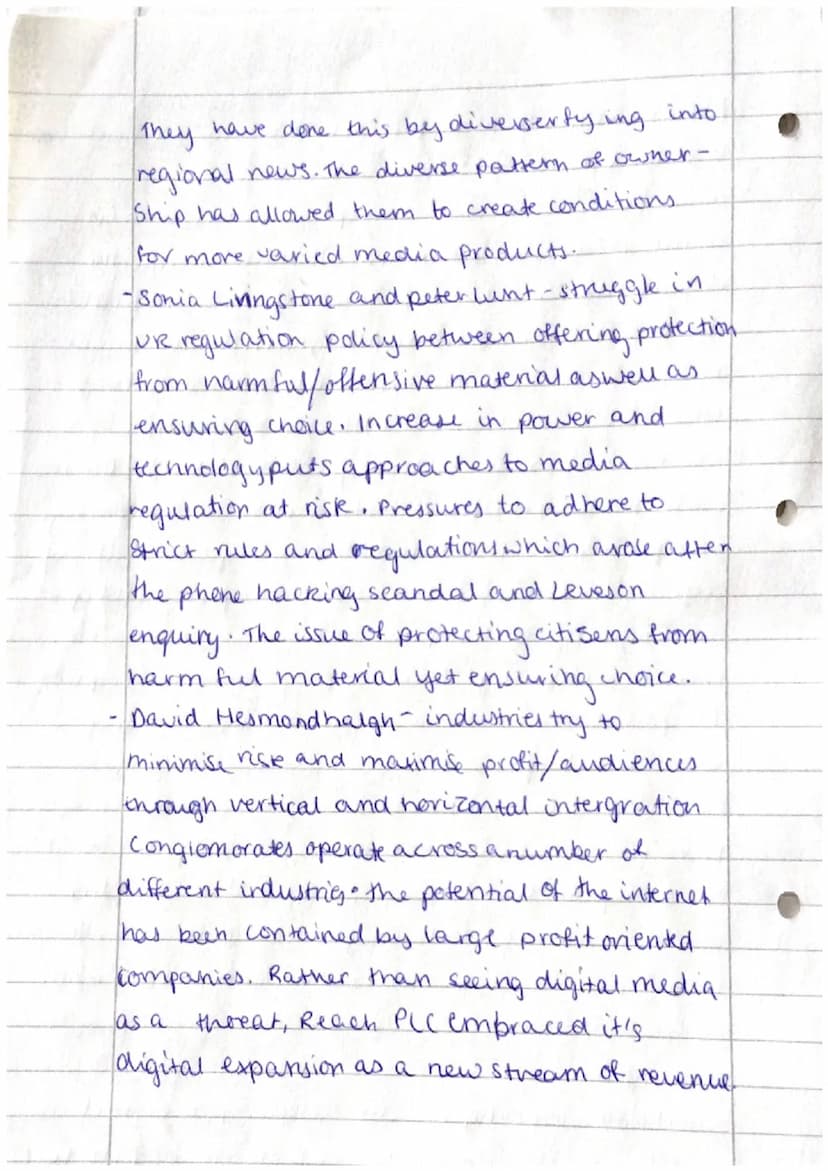 They have done this by diverserfying into
regional news. The diverse pattern of owner-
Ship has allowed them to create conditions
for more varied media products.
- Sonia Livingstone and peter lunt - struggle in
UK regulation policy between offering protection
from harmful/offensive material aswell as
ensuring choice. Increase in power and
technology puts approaches to media
regulation at risk. Pressures to adhere to
Strict rules and regulations which arose after
the phone hacking scandal and Leveson
enquiry. The issue of protecting citisens from
harmful material yet ensuring choice.
- David Hesmondhalgh - industries try to
minimise risk and maximise profit/audiences
through vertical and horizontal intergration
Conglomorates operate across a number of
different industries. the potential of the internet
has been contained by large profit oriented
companies. Rather than seeing digital media
as a threat, Reach PLC embraced it's
digital expansion as a new stream of revenue